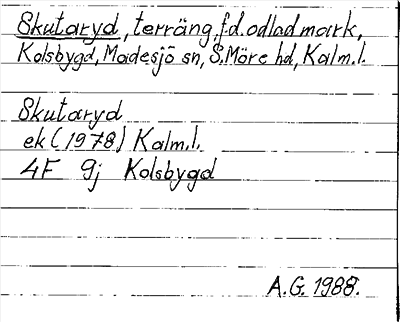 Skutaryd, terräng, f.d. odlad mark,
Kolsbygd, Madesjö sn, S. Möre hd, Kalm. l.
Skutaryd
ek (1978) Kalm. l.
4F 9j Kolsbygd
A.G. 1988.